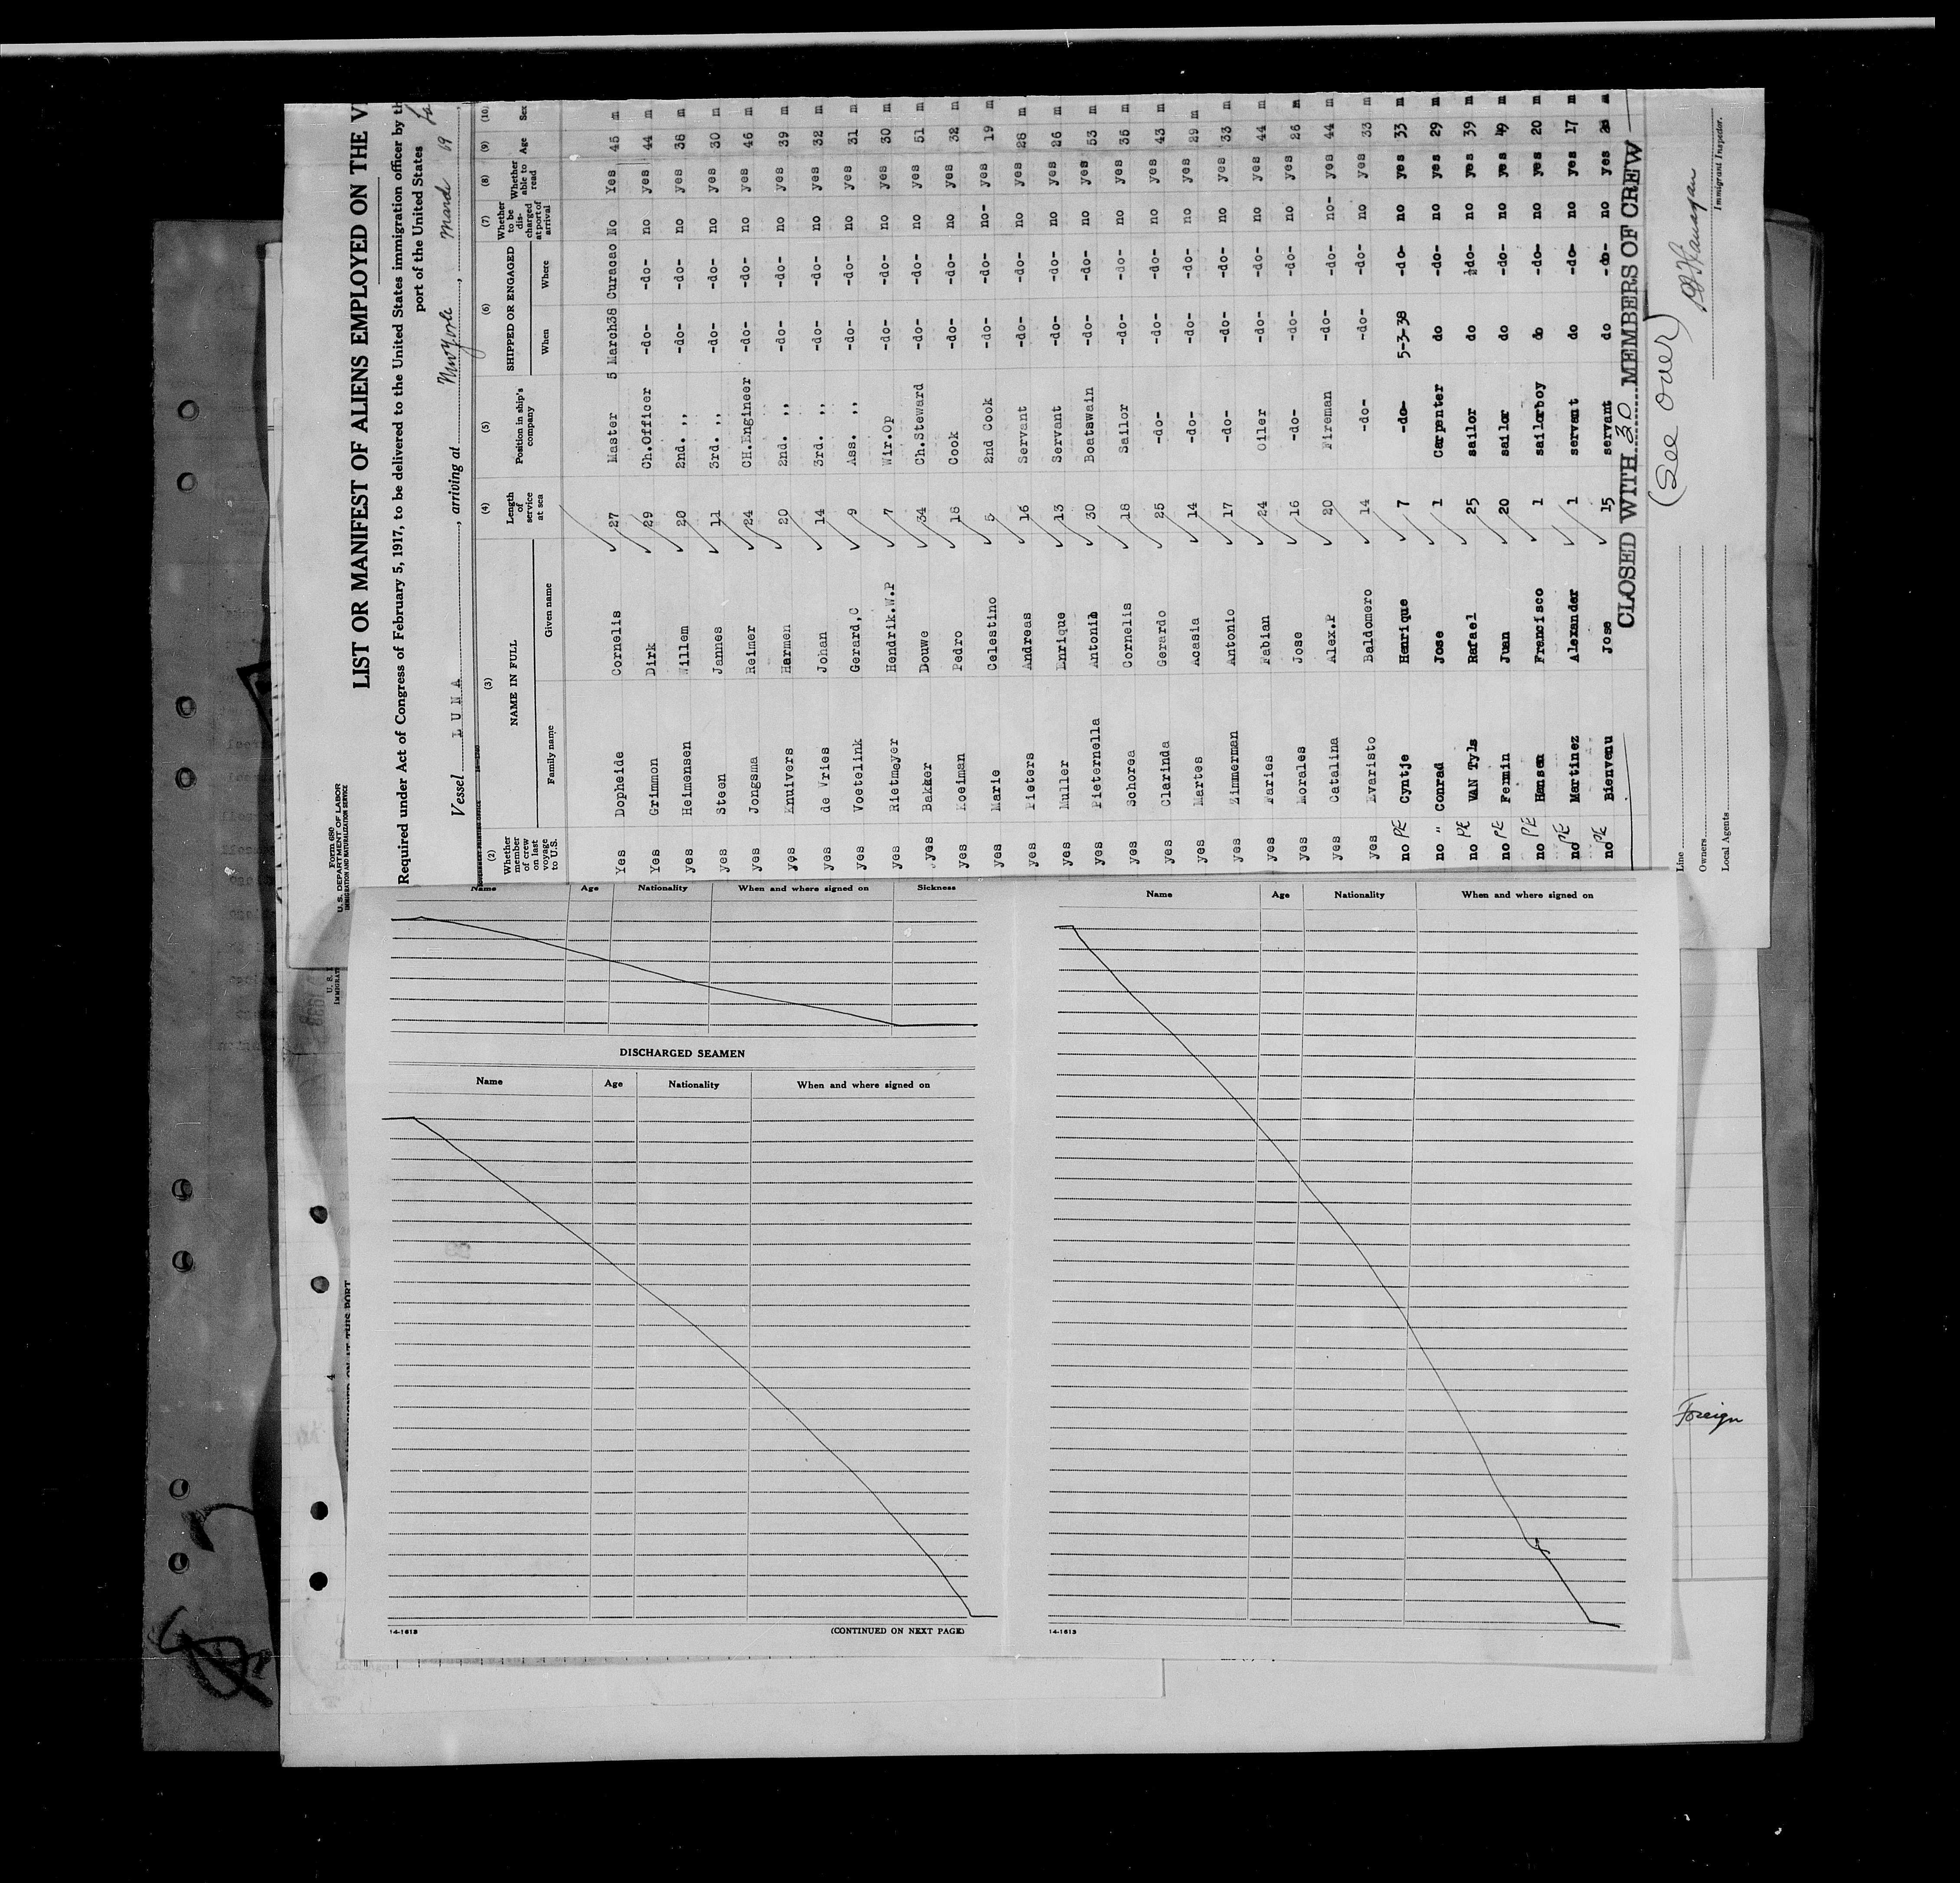 Form 680
U. S. DEPARTMENT OF LABOR
IMMIGRATION AND NATURALIZATION SERVICE
LIST OR MANIFEST OF ALIENS EMPLOYED ON THE
Required under Act of Congress of February 5, 1917, to be delivered to the United States immigration officer by th
port of the United States
Vessel LUNA, arriving at New York, March 19
(2) (3) (4) (5) (6) (7) (8) (9) (10)
Whether member of crew on last voyage to U.S. NAME IN FULL Length of service at sea Position in ship's company SHIPPED OR ENGAGED Whether to be discharged at port of arrival Whether able to read Age Sex
Family name Given name When Where
Yes Dopheide Cornelis 27 Master 5 March38 Curacao No Yes 45 m
Yes Grimmon Dirk 29 Ch.Officer -do- -do- no yes 44 m
yes Heimensen Willem 20 2nd. ,, -do- -do- no yes 36 m
yes Steen Jannes 11 3rd. ,, -do- -do- no yes 30 m
yes Jongsma Reimer 24 CH.Engineer -do- -do- no yes 46 m
yes Knuivers Harmen 20 2nd. ,, -do- -do- no yes 39 m
yes de Vries Johan 14 3rd. ,, -do- -do- no yes 32 m
yes Voetelink Gerard,C 9 Ass. ,, -do- -do- no yes 31 m
yes Rietmeyer Hendrik.W.P 7 Wir.Op -do- -do- no yes 30 m
yes Bakker Douwe 34 Ch.Steward -do- -do- no yes 51 m
yes Koeiman Pedro 18 Cook -do- -do- no yes 32 m
yes Marie Celestino 5 2nd Cook -do- -do- no- yes 19 m
yes Pieters Andreas 16 Servant -do- -do- no yes 28 m
yes Muller Enrique 13 Servant -do- -do- no yes 26 m
yes Pieternella Antonio 30 Boatswain -do- -do- no yes 53 m
yes Schorea Cornelis 18 Sailor -do- -do- no yes 35 m
yes Clarinda Gerardo 25 -do- -do- -do- no yes 43 m
yes Martes Acasia 14 -do- -do- -do- no yes 29 m
yes Zimmerman Antonio 17 -do- -do- -do- no yes 33 m
yes Faries Fabian 24 Oiler -do- -do- no yes 44 m
yes Morales Jose 16 -do- -do- -do- no yes 26 m
yes Catalina Alex.P 20 Fireman -do- -do- no- yes 44 m
yes Evaristo Baldomero 14 -do- -do- -do- no yes 33 m
no PE Cyntje Henrique 7 -do- 5-3-38 -do- no yes 33 m
no " Conrad Jose 1 Carpenter do -do- no yes 29 m
no PE VAN Tyls Rafael 25 sailor do -do- no yes 39 m
no PE Fermin Juan 20 sailor do -do- no yes 49 m
no PE Hansen Francisco 1 sailorboy do -do- no yes 20 m
no PE Martinez Alexander 1 servant do -do- no yes 17 m
no PE Bienvenu Jose 15 servant do -do- no yes m
CLOSED WITH 30 MEMBERS OF CREW
(See over)
Immigrant Inspector.
Line
Owners
Local Agents
Name Age Nationality When and where signed on Sickness
DISCHARGED SEAMEN
Name Age Nationality When and where signed on
14-1613
(CONTINUED ON NEXT PAGE)
Name Age Nationality When and where signed on
14-1613
Foreign